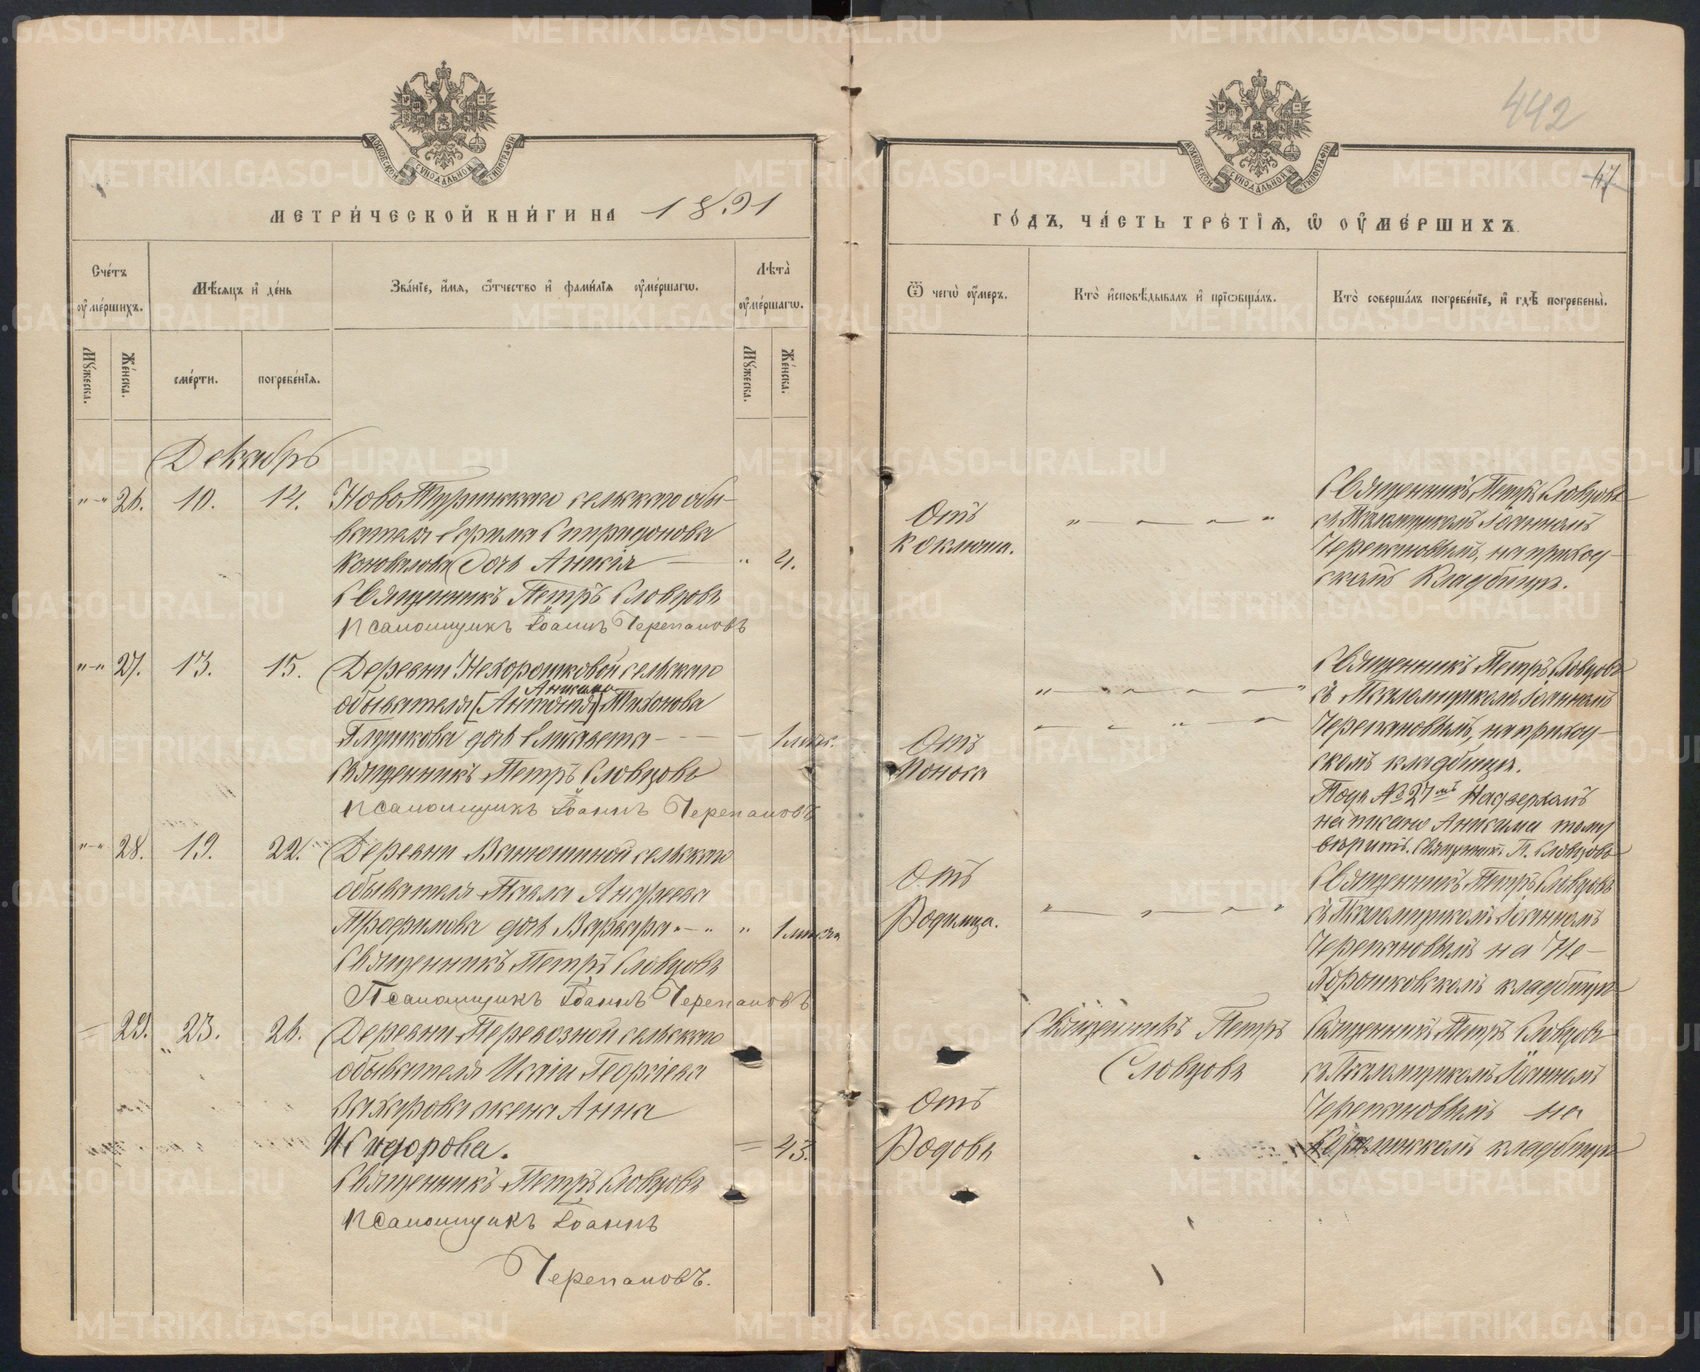 442
47
МЕТРИ́ЧЕСКОЙ КНИ́ГИ НА 1891
ГО́ДЪ, ЧА́СТЬ ТРЕ́ТІѦ, Ѡ҆ ОУ҆МЕ́РШИХЪ.
Сче́тъ оу҆ме́ршихъ.
Мѣ́сяцъ и҆ де́нь
Зва́ніе, и҆́мя, ѻ҆́тчество и҆ фами́лїя оу҆ме́ршагѡ.
Лѣ́та оу҆ме́ршагѡ.
Мꙋ́жеска.
Же́нска.
сме́рти.
погребе́нїѧ.
Мꙋ́жеска.
Же́нска.
Ѿ чегѡ̀ оу҆́меръ.
Кто̀ и҆сповѣ́дывалъ и҆ прїѡбща́лъ.
Кто̀ соверша́лъ погребе́нїе, и҆ гдѣ̀ погребены̀.
Декабрь
26. 10. 14. Ново Туринскаго сельскаго обы-
вателя Ефима Спиридонова
Коновалова дочь Анисія 4.
Священникъ Петръ Словцовъ
Псаломщикъ Іоаннъ Черепановъ
Отъ
коклюша.
Священникъ Петръ Словцовъ
съ Псаломщикомъ Іоанномъ
Черепановымъ, на приход-
скомъ Кладбищѣ.
27. 13. 15. Деревни Нехорошковой сельскаго
Аникима
обывателя (Антонія) Тихонова
дочь Елисавета
Священникъ Петръ Словцовъ
Псаломщикъ Іоаннъ Черепановъ
Отъ
Поноса
Священникъ Петръ Словцовъ
съ Псаломщикомъ Іоанномъ
Черепановымъ, на приход-
скомъ кладбищѣ.
Подъ № 27мъ надъ
написано Аникима тому
вѣрить. Священникъ П. Словцовъ
28. 19. 22. Деревни Ванюшиной сельскаго
обывателя Павла Андреева
Трофимова дочь Варвара
Священникъ Петръ Словцовъ
Псаломщикъ Іоаннъ Черепановъ
Отъ
Родимца.
Священникъ Петръ Словцовъ
съ Псаломщикомъ Іоанномъ
Черепановымъ на Не-
хорошковскомъ кладбищѣ
29. 23. 26. Деревни Перевозной сельскаго
обывателя Исаіи Георгіева
Захарова жена Анна
Исидорова. 43.
Священникъ Петръ Словцовъ
Псаломщикъ Іоаннъ
Черепановъ.
Отъ
Родовъ
Священникъ Петръ
Словцовъ
Священникъ Петръ Словцовъ
съ Псаломщикомъ Іоанномъ
Черепановымъ на
кладбищѣ
METRIKI.GASO-URAL.RU